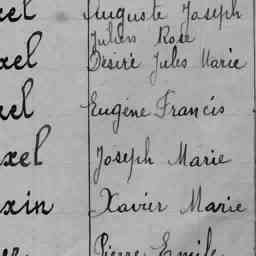 el Auguste Joseph
Julien Rose
xel Désiré Jules Marie
el Eugène Francis
xel Joseph Marie
xin Xavier Marie
er Pierre Emile